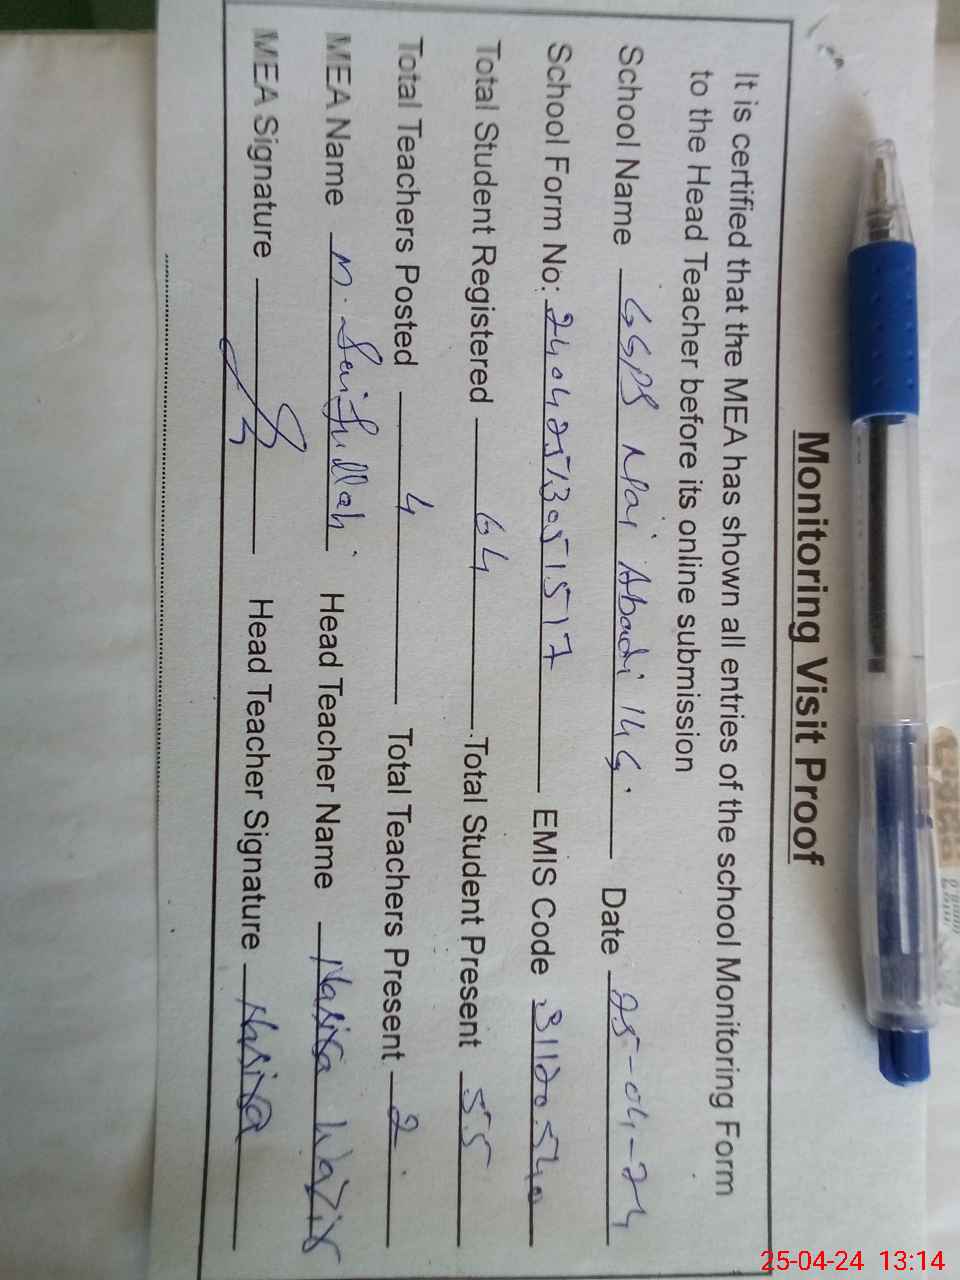 Monitoring Visit Proof
It is certified that the MEA has shown all entries of the school Monitoring Form
to the Head Teacher before its online submission
School Name GGPS Nai Abadi 14G. Date 25-04-24
School Form No: 24042513051517 EMIS Code 31120540
Total Student Registered 64 Total Student Present 55
Total Teachers Posted 4 Total Teachers Present 2
MEA Name M. Saifullah Head Teacher Name Nasira Wazir
MEA Signature Head Teacher Signature Nasira
25-04-24 13:14